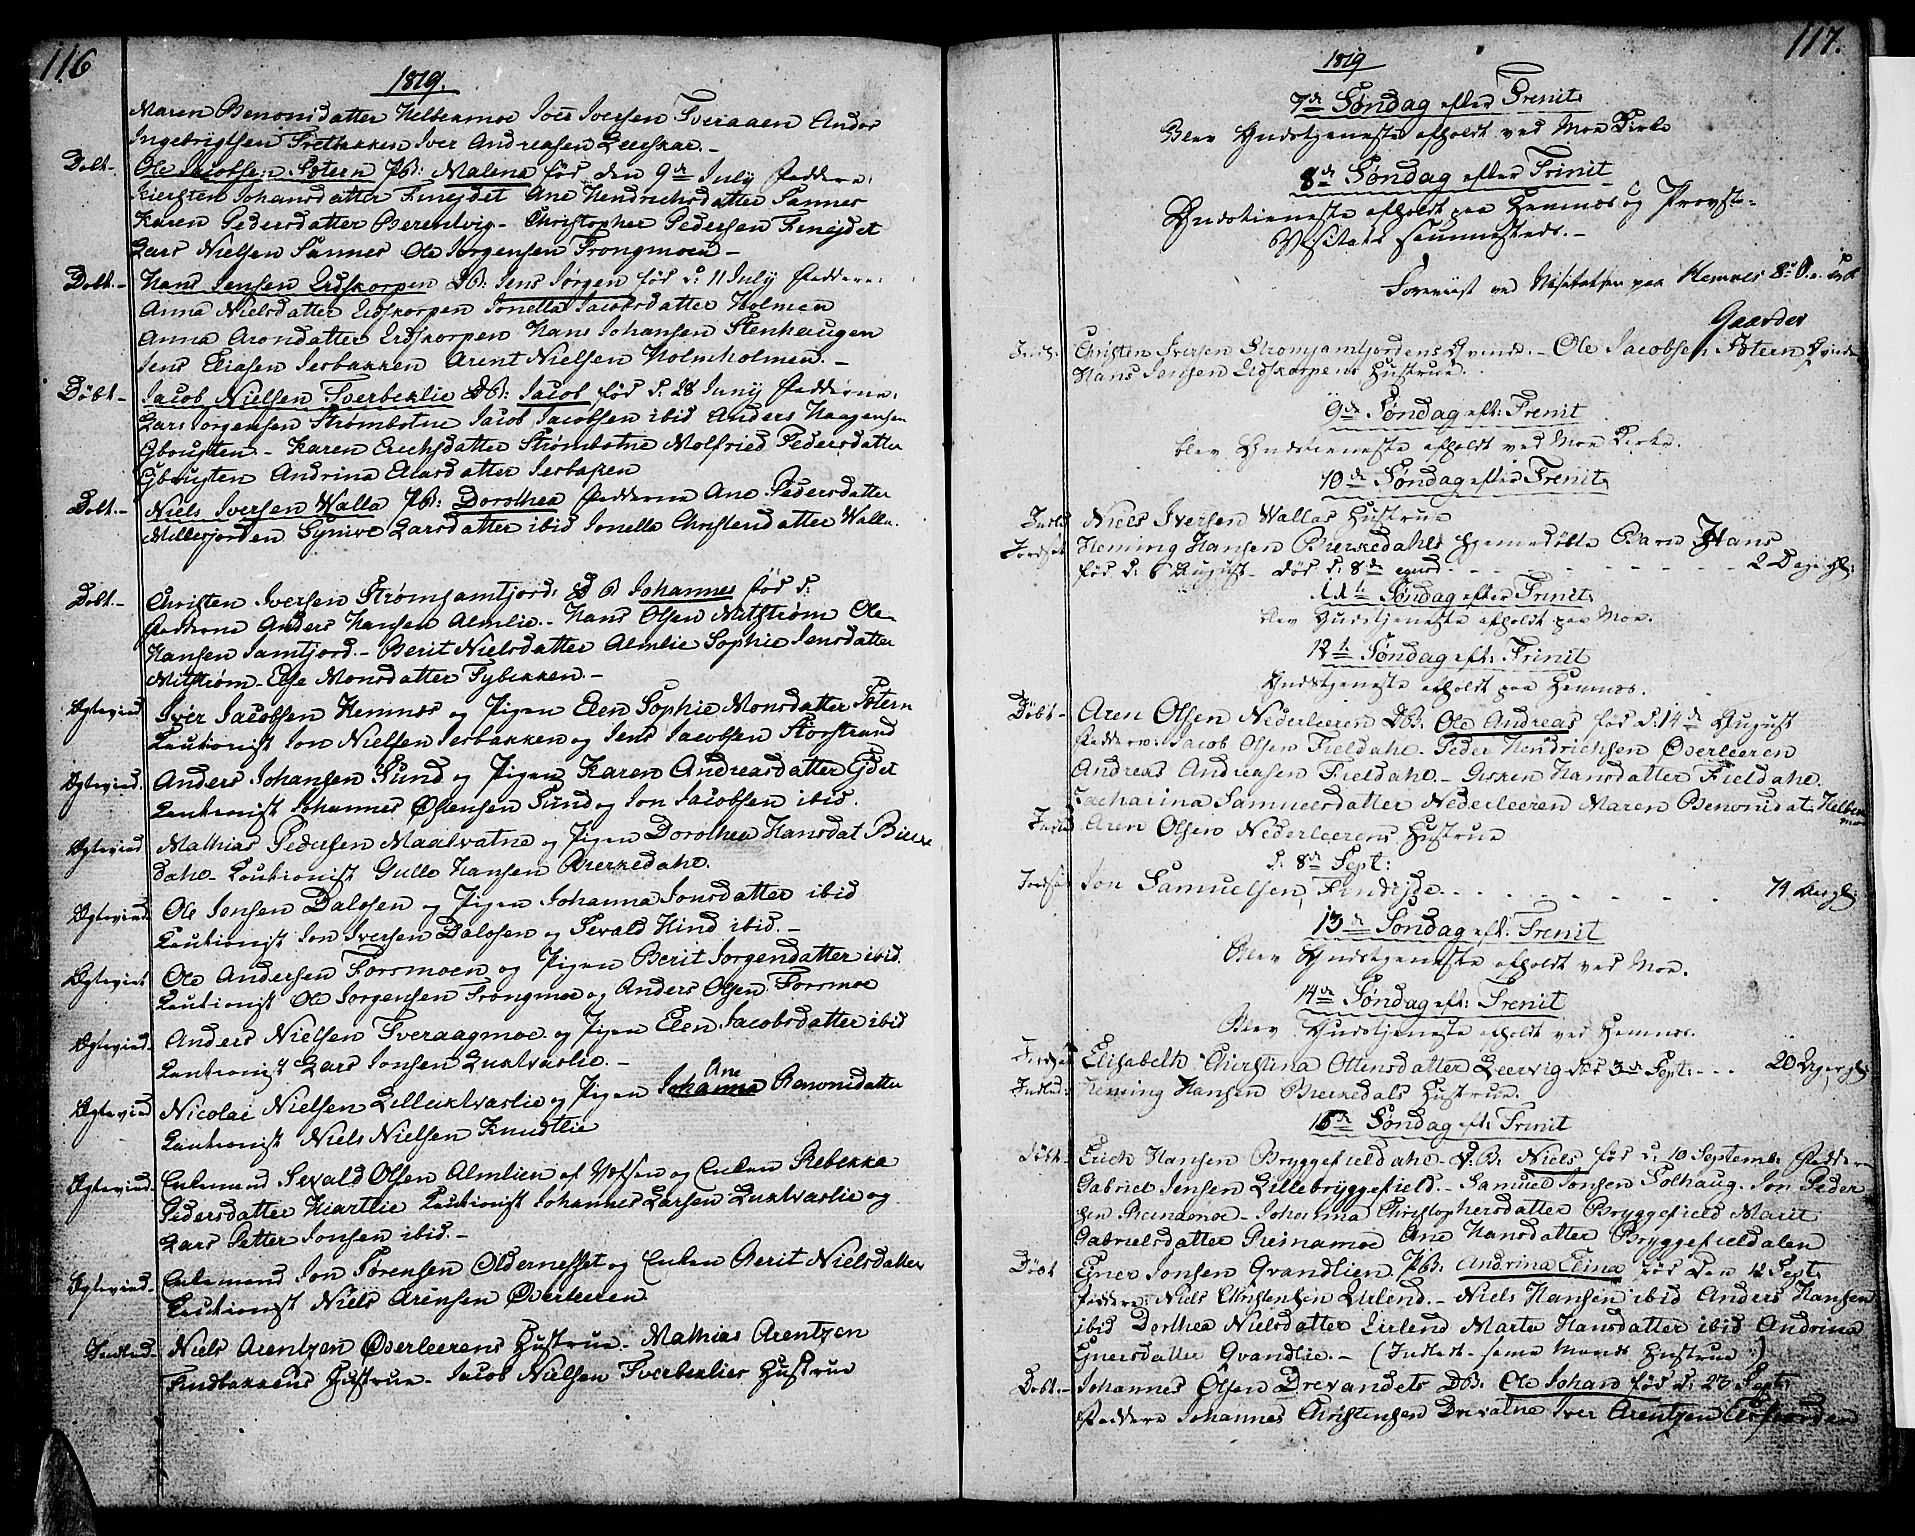 116
1819.
Maren Benonisdatter Helbermoe Iver Iversen Tveraaen Andor
Ingebrigtsen Fretbakken Iver Andreasen Leerskar.-
Døbt- Ole Jacobsen Pøtern PB: Malena fød den 9de July Faddere:
Kiersten Johansdatter Finejdet Ane Hendrichsdatter Sannes
Karen Pedersdatter Berentvig- Christopher Pedersen Finejdet
Lars Nielsen Sannes Ole Jorgensen Trongmoen-
Døbt.- Hans Jensen Lidskorpen DB: Jens Jørgen fød d: 11 July Faddere:
Anna Nielsdatter Lidskorpen Jonella Jacobsdatter Holmen
Anna Arondatter Lidskorpen Hans Johansen Stenhaugen
Jens Eliasen Jerbakken Arent Nielsen Holmholmen.-
Døbt- Jacob Nielsen Tverbeklie DB: Jacob fød d. 28 Juny Fadderne:
Lars Jorgensen Strømbotne Jacob Jacobsen ibid Anders Haagensen
Gbousten- Karen Erichsdatter Strømbotne Molfried Pedersdatter
Gbousten Andrina Eliasdatter Jerbaken
Døbt.- Niels Iversen Walla PB: Dorothea Fadderne Ane Pedersdatter
Millerjorden Synive Larsdatter ibid Jonella Christensdatter Walla.
Døbt- Christen Iversen Strømsamtjord: DB Johannes fød d:
Fadderne Anders Hansen Almlie- Hans Olsen Mitstrøm Ole
Hansen Jamtjord.- Berit Nielsdatter Almlie Sophie Jensdatter
Mitstrøm- Else Monsdatter Bybekken.-
Ægtevied Iver Jacobsen Hemnes og Pigen Elen Sophie Monsdatter Pøtern
Cautionist Jon Nielsen Jerbakken og Jens Jacobsen Storstrand
Ægtevied. Anders Johansen Sund og Pigen Karen Andreasdatter Ejdet
Cautionist Johannes Østensen Sund og Jon Jacobsen ibid.
Ægtevied Mathias Pedersen Maalvatne og Pigen Dorothea Hansdat Bierke
dahl- Cautionist Gulle Hansen Bierkedahl.
Ægtevied. Ole Jonsen Dalosen og Pigen Johanna Jonsdatter ibid
Cautionist Jon Iversen Dalosen og Sevald Hind ibid.-
Ægteviet Ole Andersen Forsmoen og Pigen Berit Jorgensdatter ibid.
Cautionist Ole Jorgensen Trongmoe og Anders Olsen Forsmoe
Ægtevied- Anders Nielsen Tveraagmoe og Pigen Elen Jacobsdatter ibid
Cautionist Lars Jonsen Lualvaslie.-
Ane
Ægtevied Nicolai Nielsen Lilleuklvaslie og Pigen Johanna Benonisdatter
Cautionist Niels Nielsen Knudtlie
Ægtevied. Enkemand Sevald Olsen Almlien af Vefsen og Enken Rebekka
Pedersdatter Hiartlie Cautionist Johannes Larsen Lualvaslie og
Lars Petter Jonsen ibid.-
Ægtevied- Enkemand Jon Sørensen Oldernesset og Enken Berit Nielsdatter
Cautionist Niels Arensen Øverleeren
Indled- Niels Arentzen Øverleerens Hustrue. Mathias Arentzen
Findbakkens Hustrue- Jacob Nielsen Tverbeklies Hustrue
117.
1819
7de Søndag efter Trenit:
Blev Gudstjeneste afholdt ved Moe Kirke
8de Søndag efter Trinit
Gudstieneste afholdt paa Hemnes og Provste-
Visitats sammesteds.-
Foreviist ved Visitatsen paa Hemnes 8de
Gaarder
Indl. Christen Iversen Strømsamtjordens Qvinde- Ole Jacobsen Pøtern Qvinde
Hans Jensen Lidskorpens Hustrue.
9de Søndag eft: Trenit
blev Gudstieneste afholdt ved Moe Kirke.
10de Søndag efter Trenit
Indled Niels Iversen Wallas Hustrue
Jordfæst Heming Hansen Bierkedahls hjemmedøbte Barn Hans
fød d: 6 August- død d: 8de ejusd. - - - 2 Dage gl:
11te Søndag efter Trinit
blev Gudstjeneste afholdt paa Moe.
12te Søndag eft: Trinit
Gudstjeneste afholdt paa Hemnes.
Døbt- Aren Olsen Nederleeren DB: Ole Andreas fød d: 14de August
Faddere: Jacob Olsen Fieldahl. Peder Hendrichsen Øverleeren
Andreas Andreasen Fieldahl.- Gisken Hansdatter Fieldahl.
Zacharina Samuelsdatter Nederleeren Maren Benonidat. Helber
moe
Indled Aren Olsen Nederleerens Hustrue
d: 8de Sept:
Jordfæst Jon Samuelsen, Finejde - - - 74 Aar gl:
13de Søndag eft: Trenit
Blev Gudstjeneste afholdt ved Moe.
14de Søndag eft: Trenit
Blev Gudstjeneste afholdt ved Hemnes.
Jordfæst Elisabeth Chirstina Ottensdatter Leervig død 3de Sept: - - - 20 Uger gl:
Indled: Heming Hansen Bierkedals Hustrue.
15de Søndag eft: Trinit
Døbt- Erich Hansen Bryggefieldahl- D.B: Niels fød d: 10 Septemb: Faddere
Gabriel Jensen Lillebryggefield.- Samuel Jonsen Solhaug. Jon Peder
sen Reinamoe- Johanna Christophersdatter Bryggefield Marit
Gabrielsdatter Reinamoe Ane Hansdatter Bryggefieldalen
Døbt Egner Jonsen Qvandlien PB: Andrina Elina fød den 12 Sept:
Faddere: Niels Christensen Lirlend.- Niels Hansen ibid Anders Hansen
ibid Dorthea Nielsdatter Lirlend Marta Hansdatter ibid Andrina
Egnersdatter Qvandlie.- (Indledt- same Mands Hustrue:)
Døbt.- Johannes Olsen Drevandets DB: Ole Johan fød d: 23 Sept:
Faddere Johannes Christensen Drevatne Iver Arentzen Asfiorden